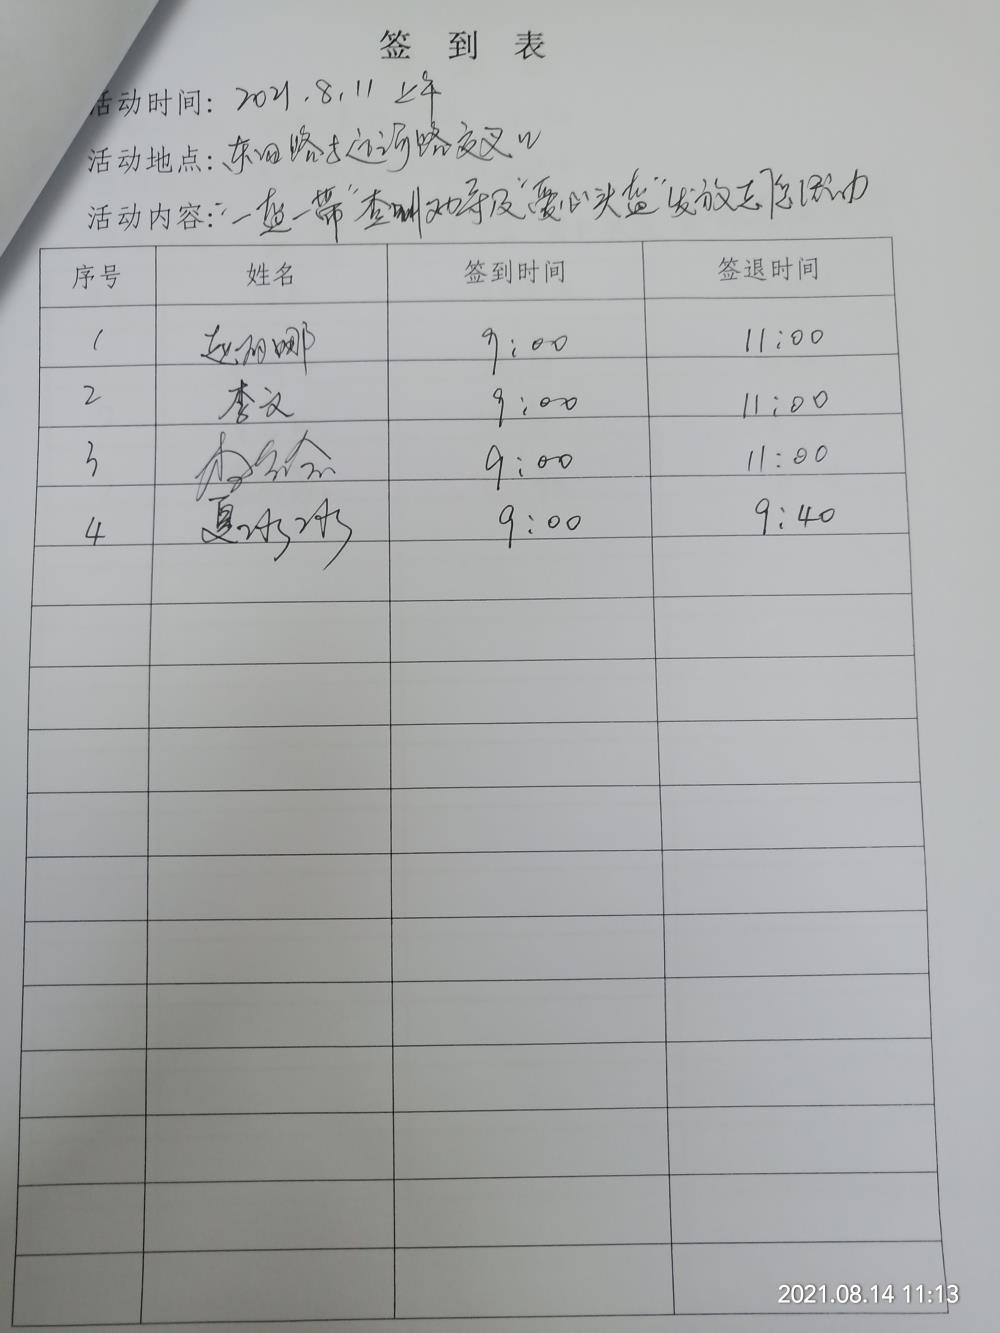 签到表
活动时间: 2021.8.11 上午
活动地点: 东田路与运河路交叉口
活动内容: "一盔一带"查纠劝导及"爱心头盔"发放志愿活动
序号 姓名 签到时间 签退时间
1 赵丽娜 9:00 11:00
2 李文 9:00 11:00
3 9:00 11:00
4 夏冰冰 9:00 9:40
2021.08.14 11:13